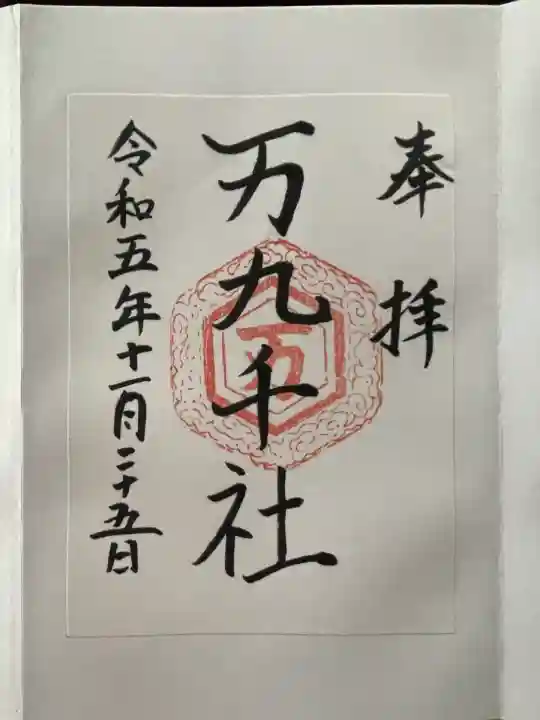 奉拝
万九千社
令和五年十一月二十五日